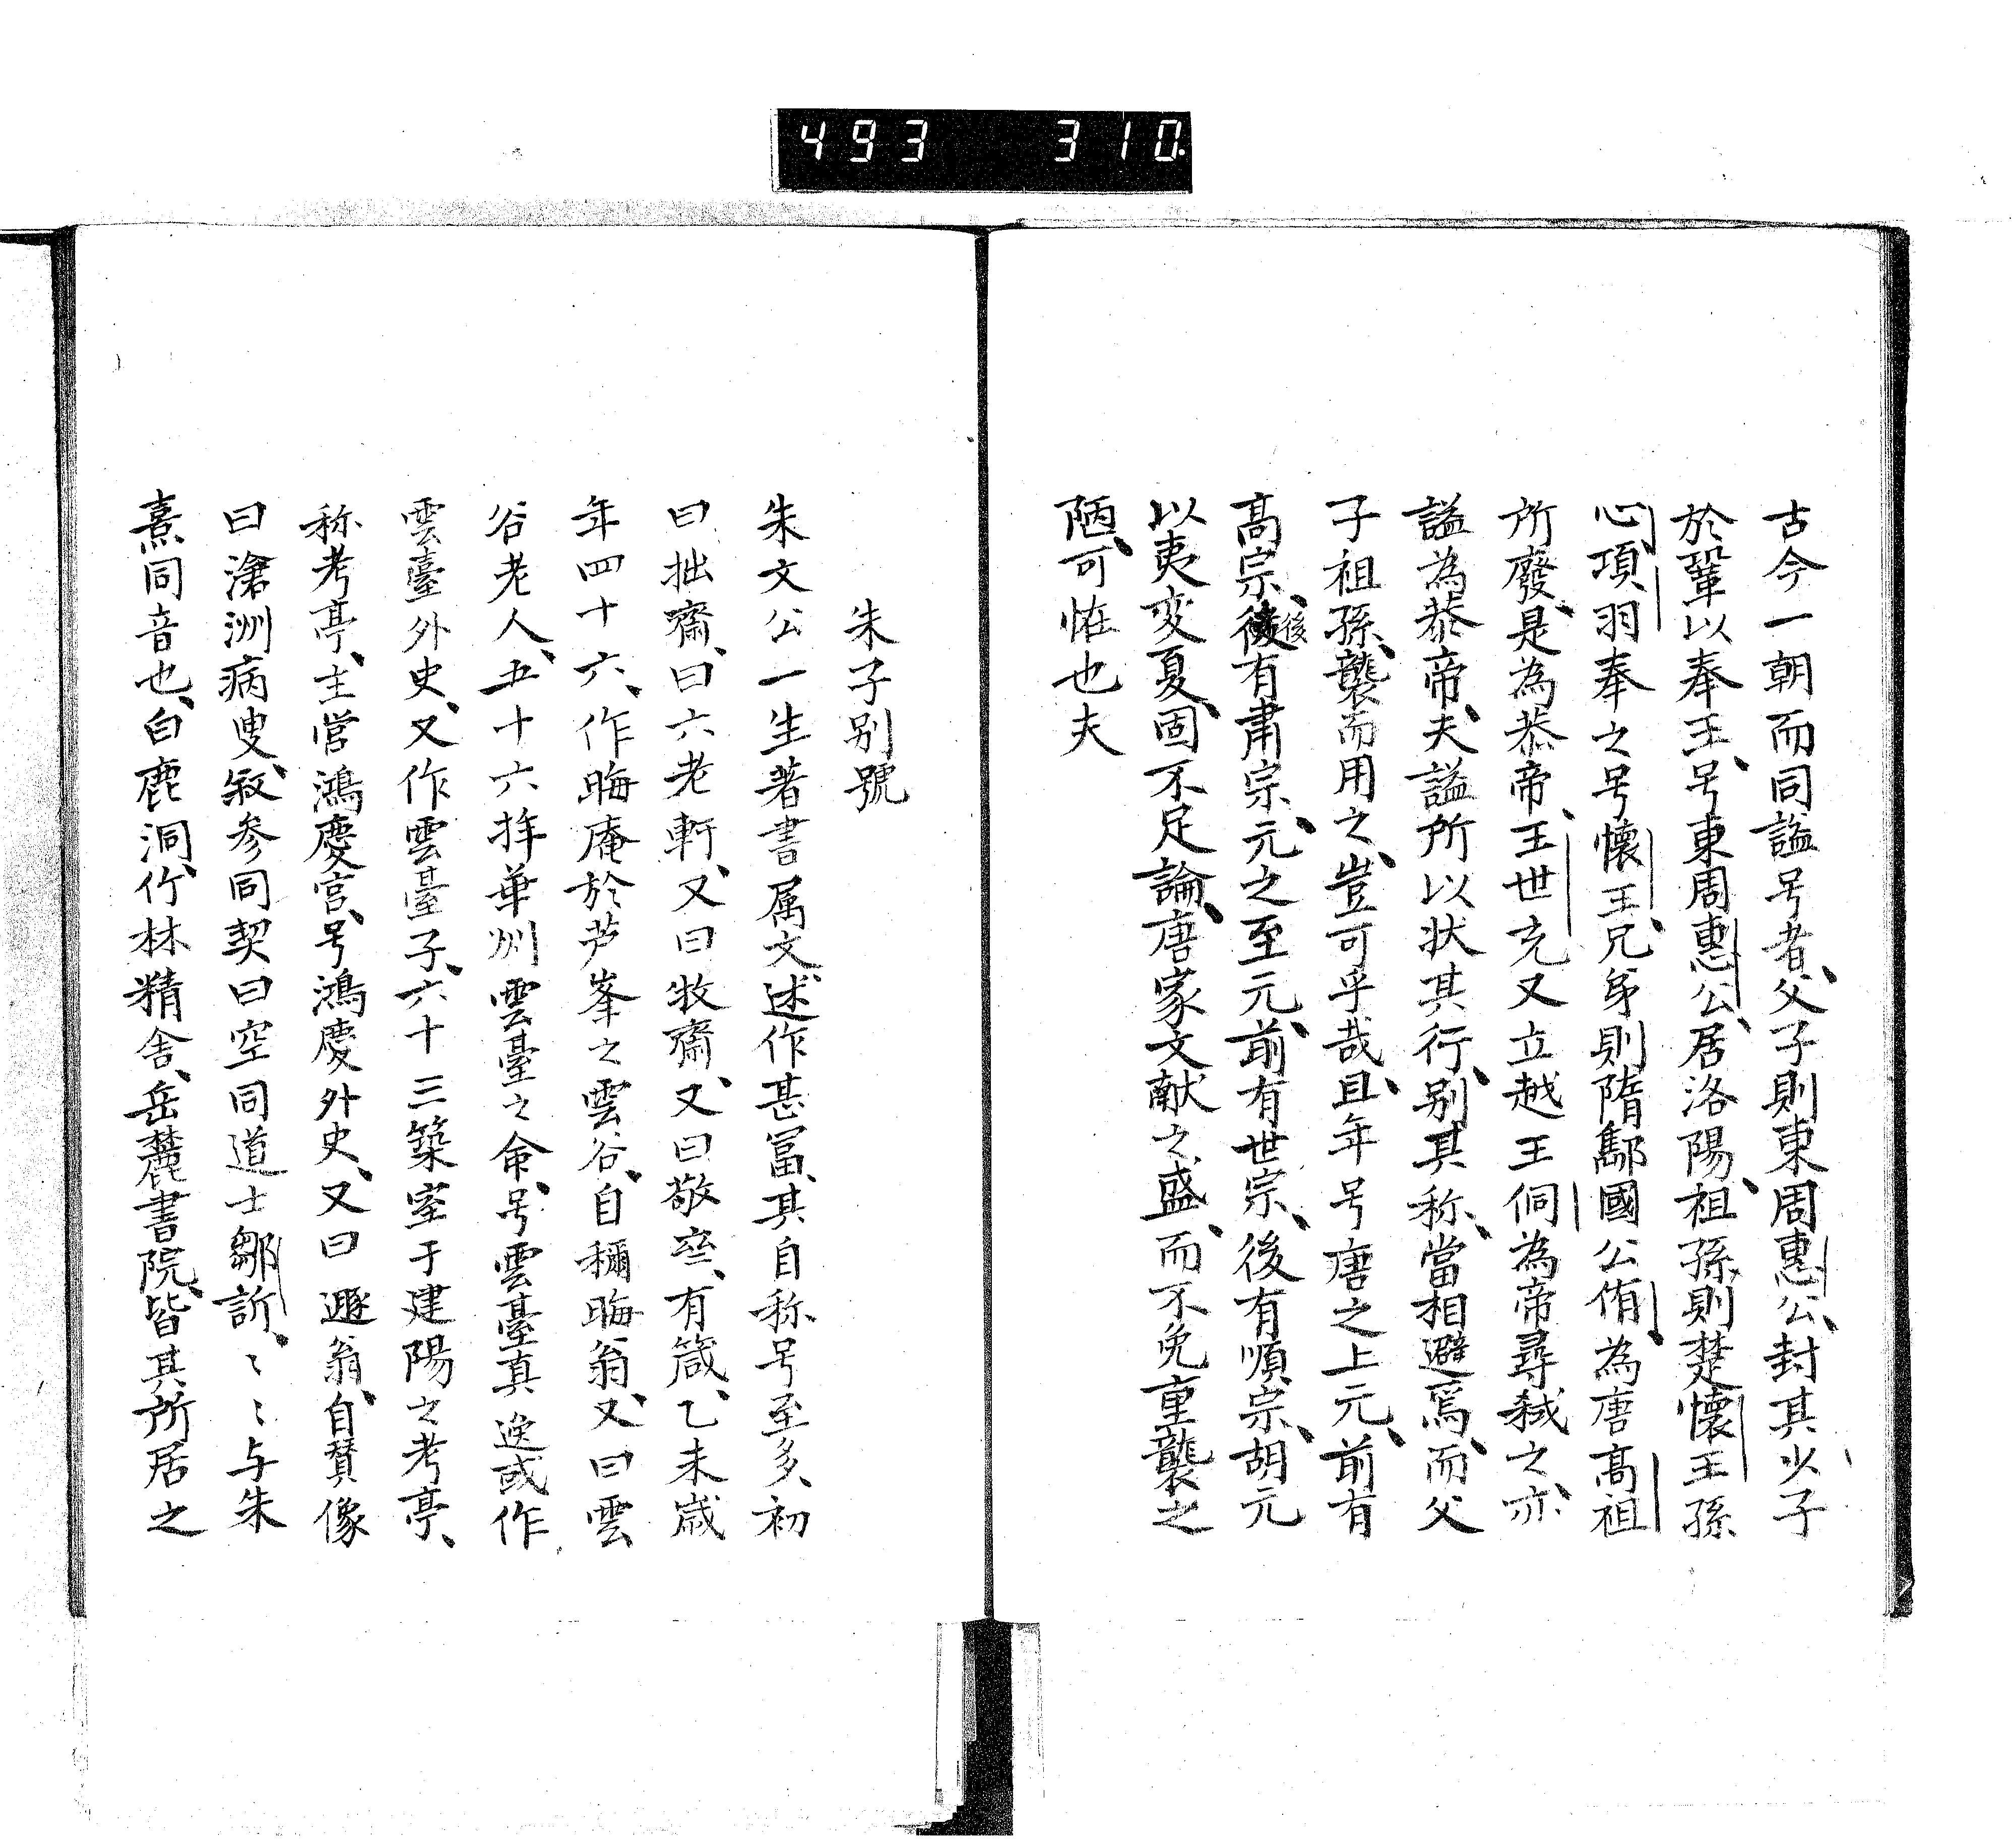 493 310.
古今一朝而同謚号者、父子則東周惠公、封其少子
於鞏以奉王、号東周惠公、居洛陽、祖孫則楚懷王孫
心、項羽奉之号懷王、兄弟則隋酅國公侑、為唐高祖
所廢、是為恭帝、王世充又立越王侗為帝尋弑之、亦
謚為恭帝、夫謚所以状其行、别其称、當相避焉、而父
子祖孫、襲而用之、豈可乎哉、且年号唐之上元、前有
高宗、後有肅宗、元之至元、前有世宗、後有順宗、胡元
後
以夷变夏、固不足論、唐家文献之盛、而不免重襲之
陋、可恠也夫
朱子别號
朱文公一生著書属文、述作甚冨、其自称号至多、初
曰拙齋、曰六老軒、又曰牧齋、又曰敬齋、有箴、乙未歳
年四十六、作晦庵於芦峯之雲谷、自稱晦翁、又曰雲
谷老人、五十六拜華州雲臺之命、号雲臺真逸或作
雲臺外史、又作雲臺子、六十三築室于建陽之考亭、
称考亭、主管鴻慶宮、号鴻慶外史、又曰遯翁、自賛像
曰滄洲病叟、叙参同契曰空同道士鄒訢、〻〻与朱
熹同音也、白鹿洞、竹林精舎、岳麓書院、皆其所居之